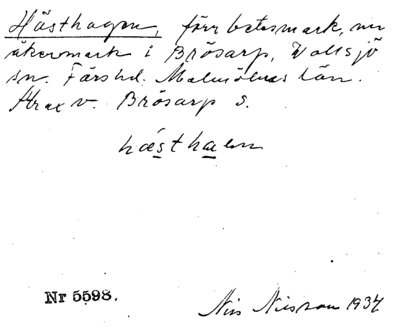 Hästhagen, förr betesmark, nu
åkermark i Brösarp, Vollsjö
sn. Färs hd. Malmöhus län.
Strax v. Brösarp s.
hästhaen
Nr 5598.
Nils Nilsson 1937